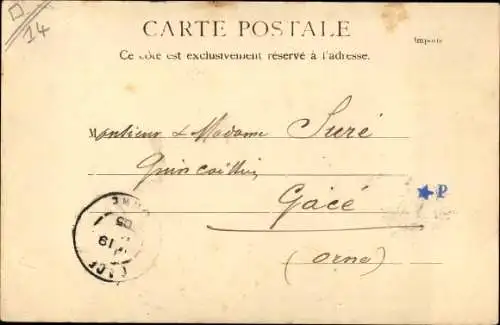 14
CARTE POSTALE
Ce côté est exclusivement réservé à l'adresse.
Imprimé
Monsieur & Madame Suré
Quincaillier
Gacé
(Orne)
★P
GACE
19
05
ORNE